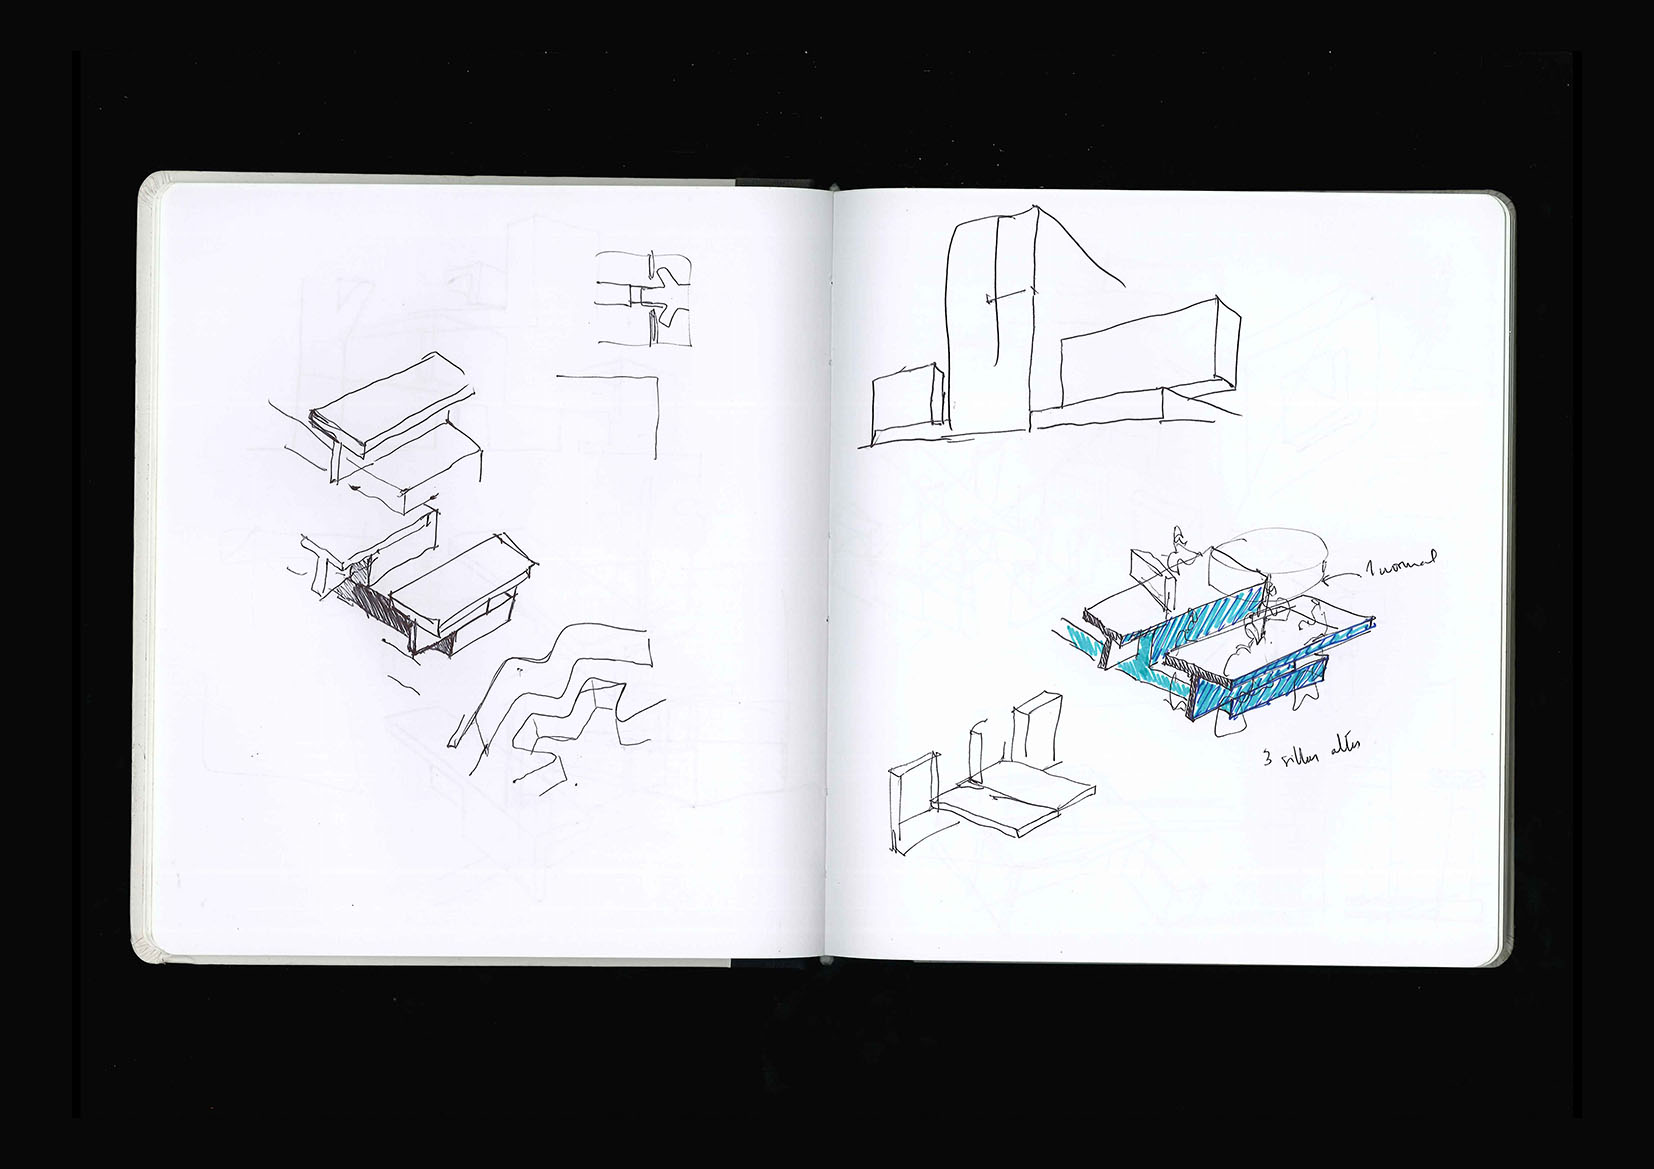 1 normal
3 sillas altas